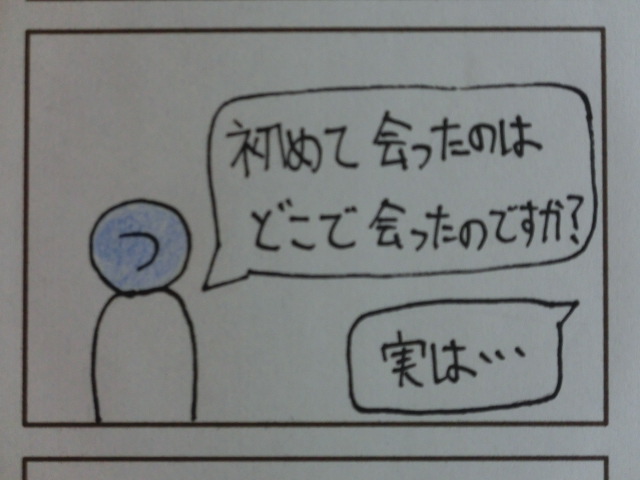 初めて会ったのは
どこで会ったのですか?
つ
実は…